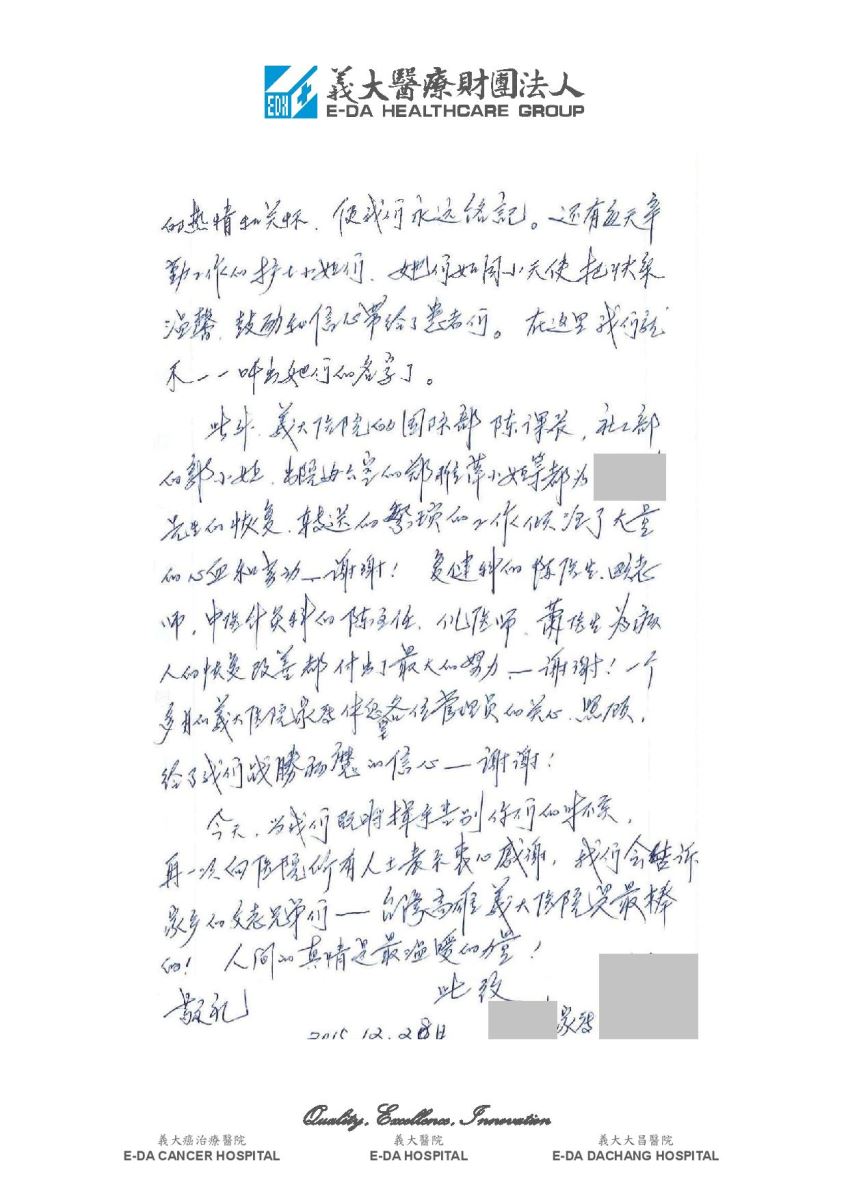 義大醫療財團法人
E-DA HEALTHCARE GROUP
的热情和关怀，使我们永远铭記。还有每天辛
勤工作的护士小姐们，她们如同小天使把快乐
温馨，鼓励和信心带给了患者们。在这里我们就
不一一呼出她们的名字了。
此外，義大医院的国际部陈课长，社工部
的郭小姐，出院办公室的郑雅萍小姐等都为
先生的恢复、转送的繁琐的工作倾注了大量
的心血和劳动—谢谢！复健科的陈医生、老
师，中医针灸科的陈主任、医师，萧医生为病
人的恢复改善都付出了最大的努力—谢谢！一个
多月的義大医院家各位管理员的关心、照顾，
给了我们战勝病魔的信心—谢谢！
今天，当我们既将挥手告别你们的时候，
再一次向医院所有人士表示衷心感谢，我们会告诉
家乡的父老兄弟们—台灣高雄義大医院是最棒
的！人间的真情是最温暖的！
此致
敬礼
家属
2015.12.28日
Quality, Excellence, Innovation
義大癌治療醫院 義大醫院 義大大昌醫院
E-DA CANCER HOSPITAL E-DA HOSPITAL E-DA DACHANG HOSPITAL